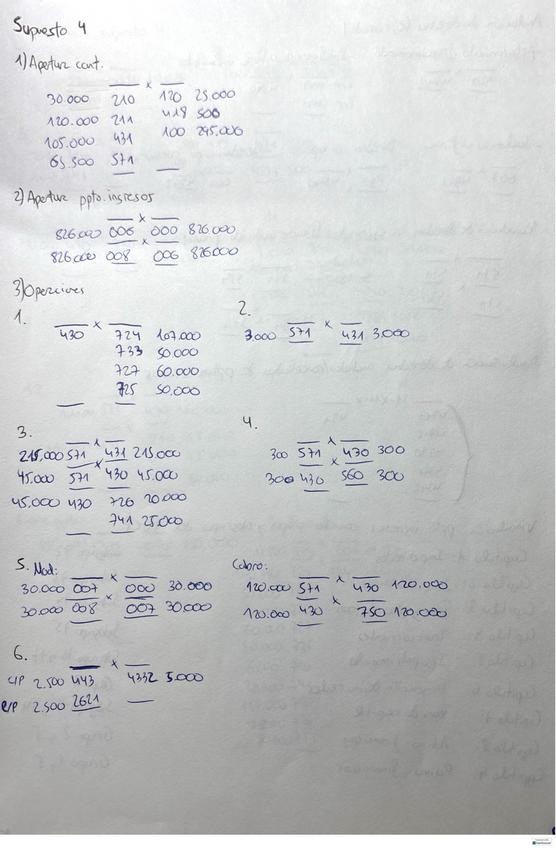 Supuesto 4
1) Apertura cont.
x
30.000 210 120 25.000
120.000 211 419 500
105.000 431 100 295.000
65.500 571
2) Apertura ppto. ingresos
x
826.000 006 000 826.000
x
826.000 008 006 826.000
3) Operaciones
1.
x
430 724 107.000
733 50.000
727 60.000
725 50.000
2.
x
3.000 571 431 3.000
3.
x
215.000 571 431 215.000
x
45.000 571 430 45.000
45.000 430 726 20.000
741 25.000
4.
x
300 571 430 300
x
300 430 560 300
5. Mod:
x
30.000 007 000 30.000
x
30.000 008 007 30.000
Cobro:
x
120.000 571 430 120.000
x
120.000 430 750 120.000
6.
x
c/P 2.500 443 4332 5.000
l/P 2.500 2621